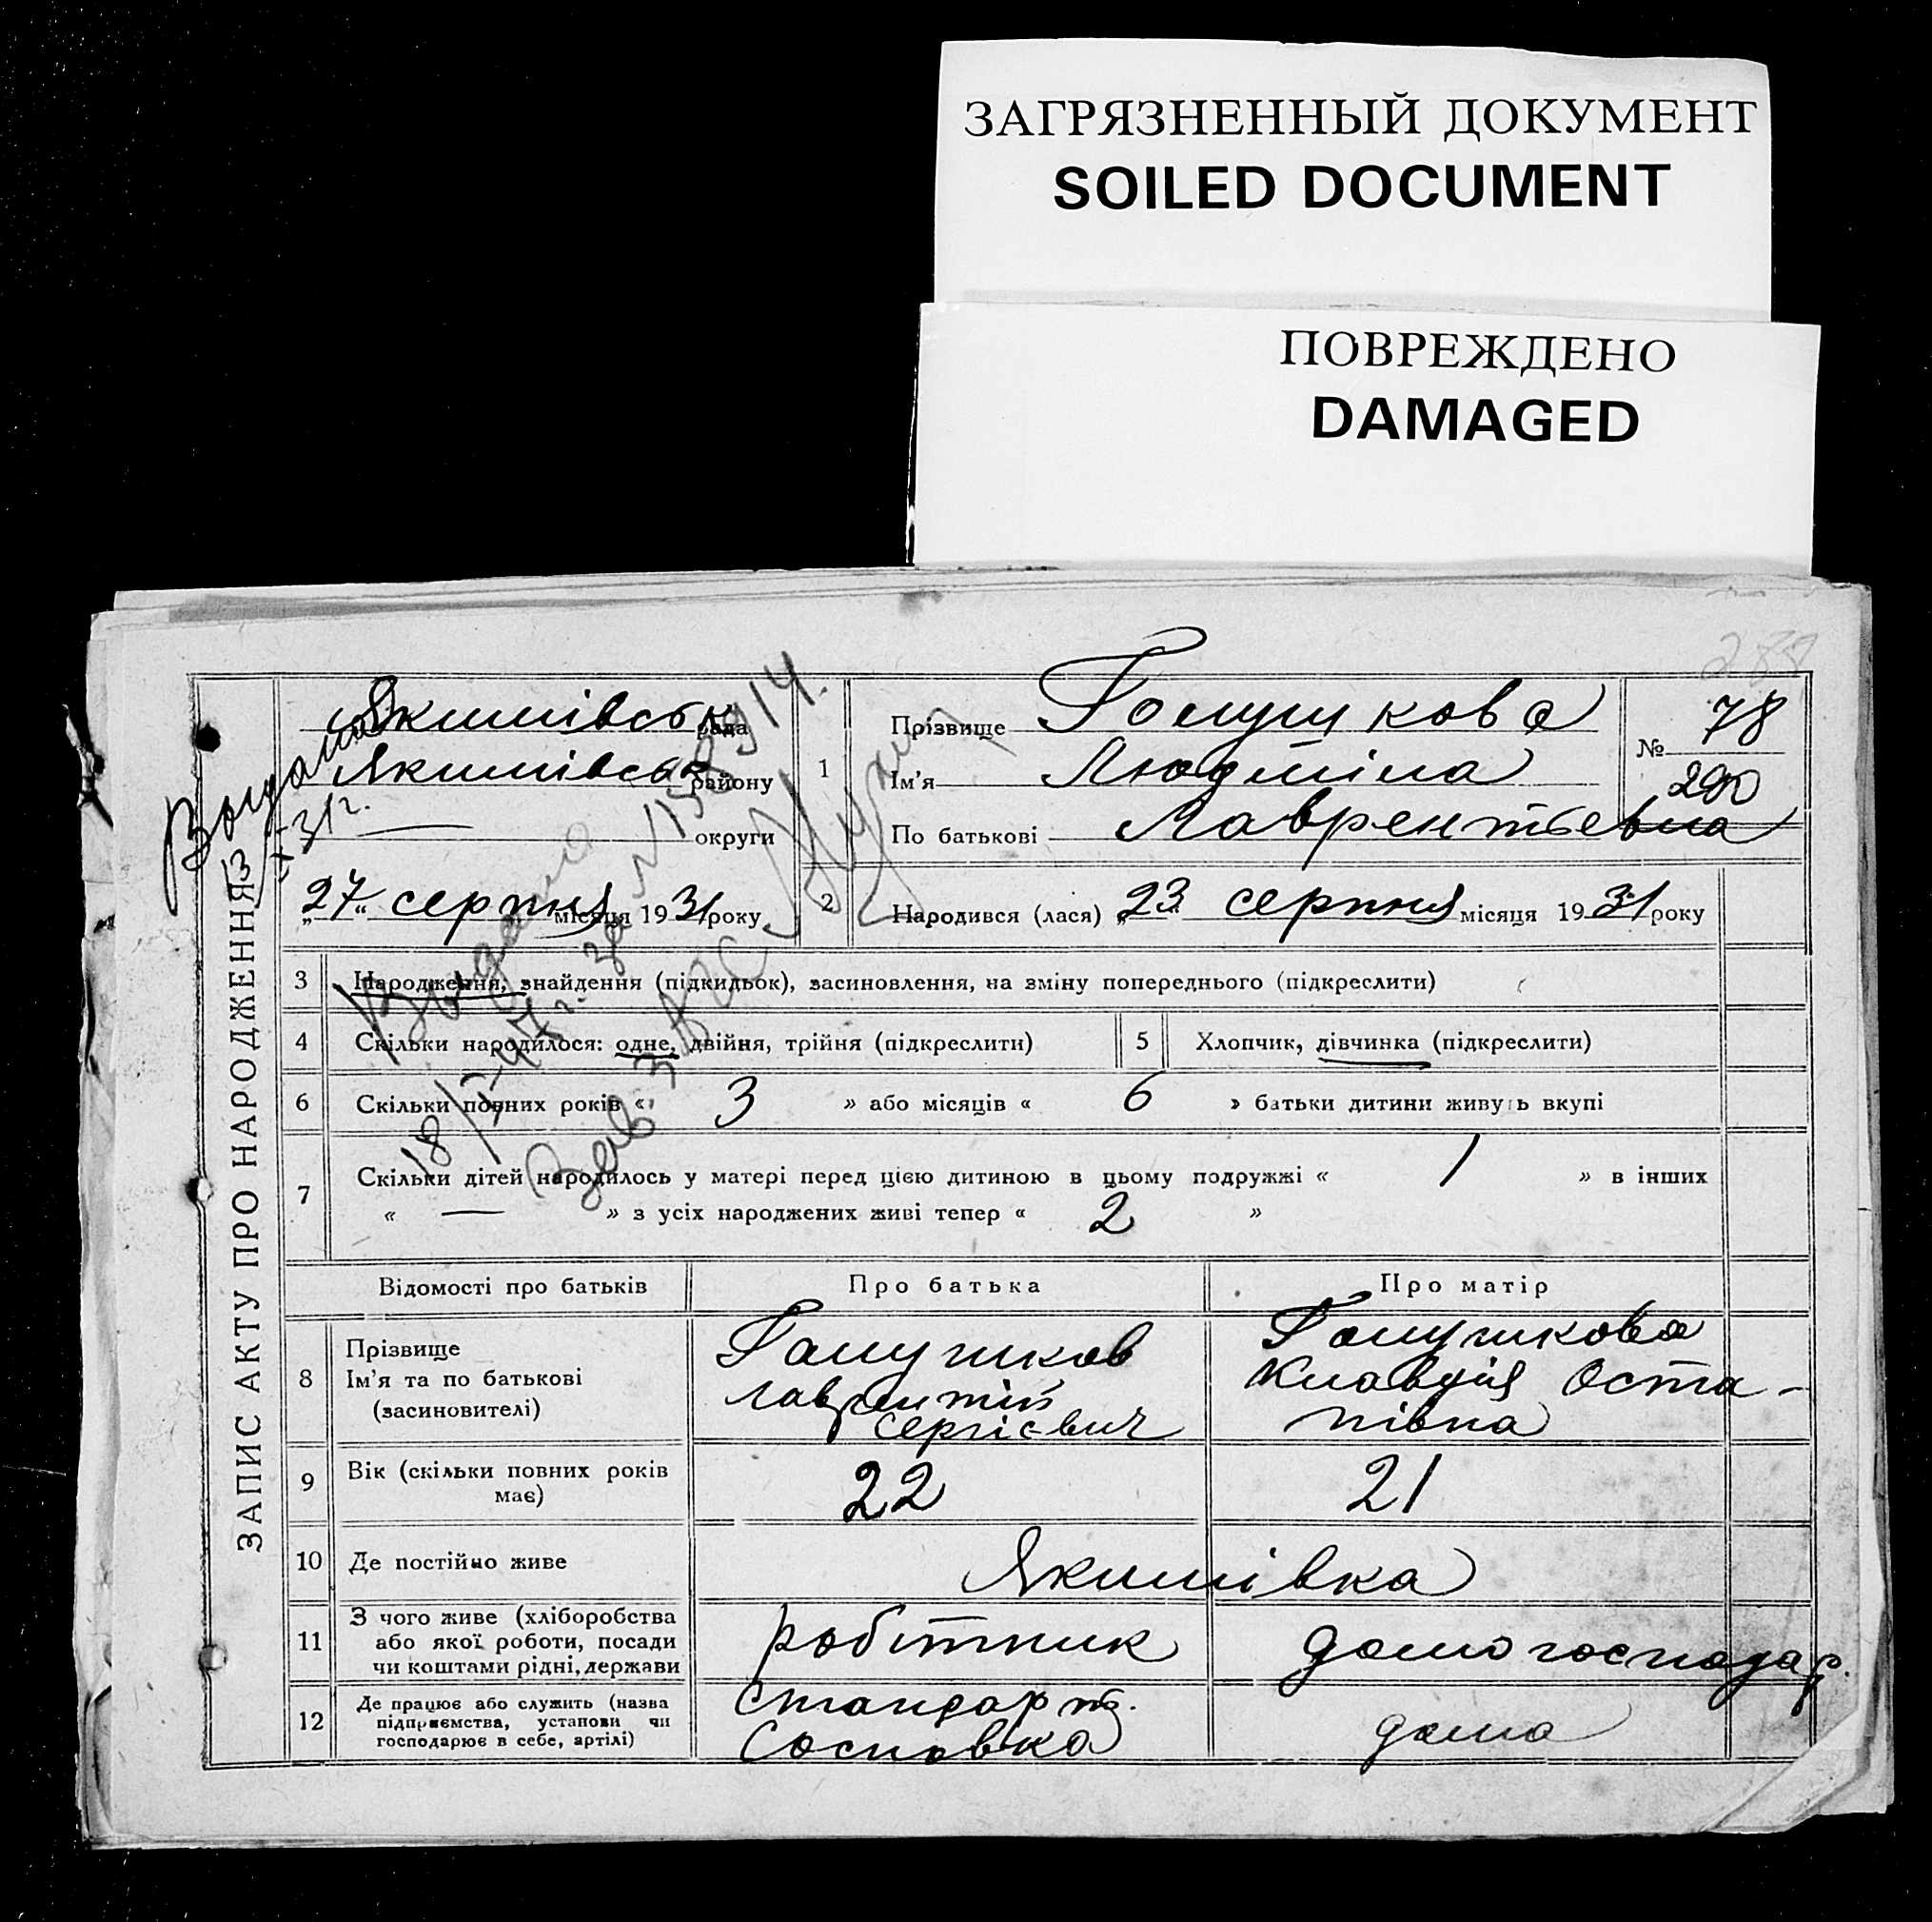 ЗАГРЯЗНЕННЫЙ ДОКУМЕНТ
SOILED DOCUMENT
ПОВРЕЖДЕНО
DAMAGED
288
ЗАПИС АКТУ ПРО НАРОДЖЕННЯ
Якимівськ рада
Якимівськ району
— округи
„27“ серпня місяця 1931 року
1
Прізвище Галушкова
Ім’я Людміла
По батькові Лаврентьевна
№ 78
290
2 Народився (лася) „23“ серпня місяця 1931 року
3 Народження, знайдення (підкидьок), засиновлення, на зміну попереднього (підкреслити)
4 Скільки народилося: одне, двійня, трійня (підкреслити)
5 Хлопчик, дівчинка (підкреслити)
6 Скільки повних років « 3 » або місяців « 6 » батьки дитини живуть вкупі
7 Скільки дітей народилось у матері перед цією дитиною в цьому подружжі « 1 » в інших
« — » з усіх народжених живі тепер « 2 »
Видано
18/I-47 г. за №
Зав. Загс
Відомості про батьків Про батька Про матір
8 Прізвище
Ім’я та по батькові
(засиновителі)
Галушков
Лаврентій
Сергієвич
Галушкова
Клавдія Оста-
півна
9 Вік (скільки повних років
має)
22
21
10 Де постійно живе Якимівка
11 З чого живе (хліборобства
або якої роботи, посади
чи коштами рідні, держави
робітник
домогосподар.
12 Де працює або служить (назва
підприємства, установи чи
господарює в себе, артілі)
стандарт.
Сосновка
дома